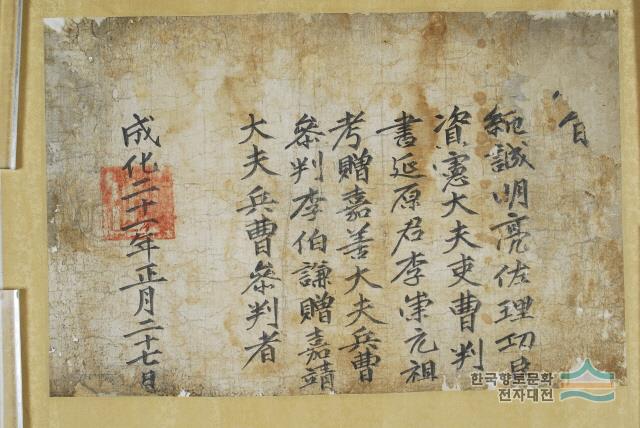 旨
純誠明亮佐理功臣
資憲大夫吏曹判
書延原君李崇元祖
考贈嘉善大夫兵曹
參判李伯謙贈嘉靖
大夫兵曹參判者
成化二十一年正月二十七日
한국향토문화
전자대전